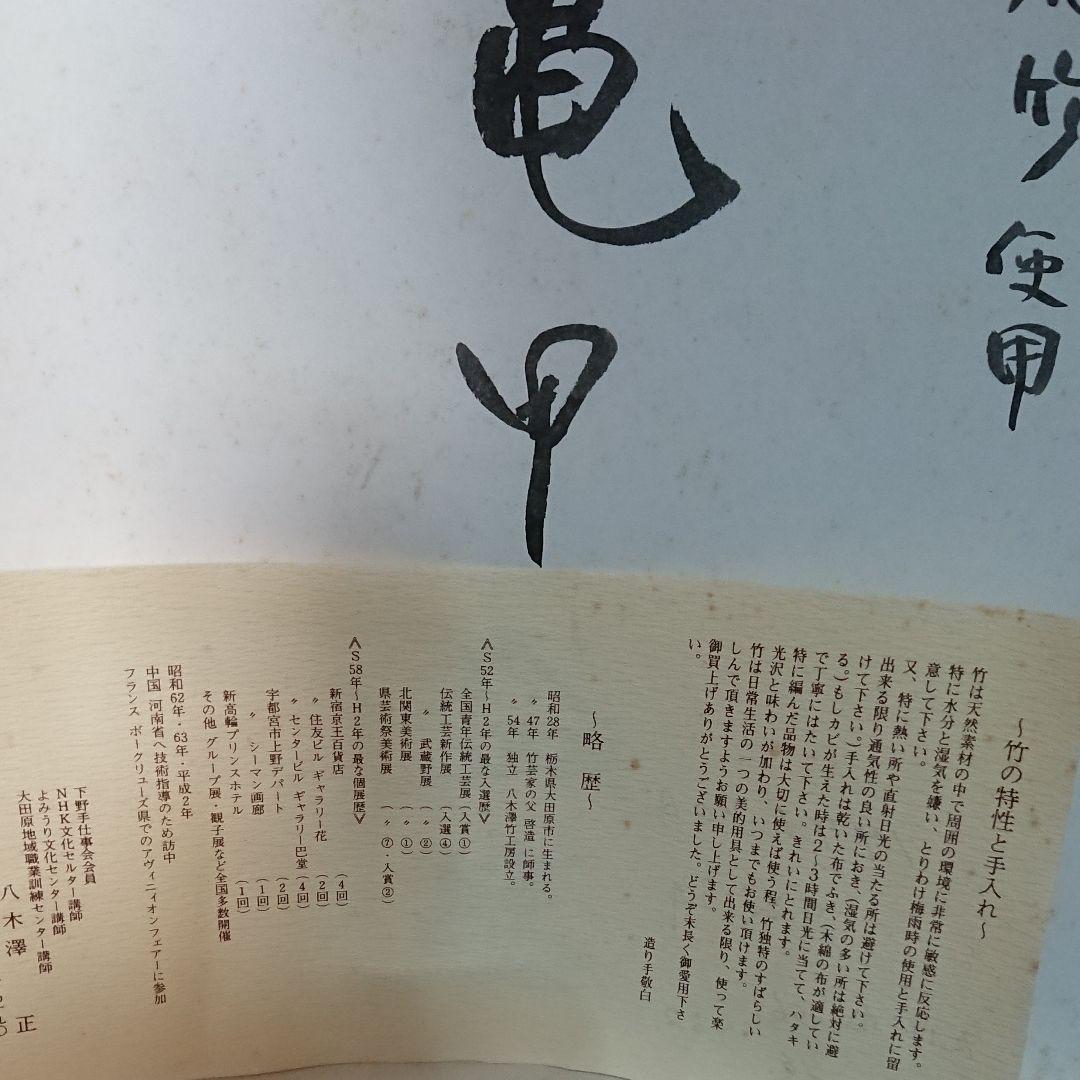 竹
使甲
亀甲
～竹の特性と手入れ～
竹は天然素材の中で周囲の環境に非常に敏感に反応します。
特に水分と湿気を嫌い、とりわけ梅雨時の使用と手入れに留
意して下さい。
又、特に熱い所や直射日光の当たる所は避けて下さい。
出来る限り通気性の良い所におき、（湿気の多い所は絶対に避
けて下さい。）手入れは乾いた布でふき、（木綿の布が適してい
る。）もしカビが生えた時は２～３時間日光に当てて、ハタキ
で丁寧にはたいて下さい。きれいにとれます。
特に編んだ品物は大切に使えば使う程、竹独特のすばらしい
光沢と味わいが加わり、いつまでもお使い頂けます。
竹は日常生活の一つの美的用具として出来る限り、使って楽
しんで頂きますようお願い申し上げます。
御買上げありがとうございました。どうぞ末長く御愛用下さ
い。
造り手敬白
～略 歴～
昭和28年 栃木県大田原市に生まれる。
〃 47年 竹芸家の父 啓造 に師事。
〃 54年 独立 八木澤竹工房設立。
≪S52年～H2年の最な入選歴≫
全国青年伝統工芸展（入賞①）
伝統工芸新作展 （入選④）
〃 武蔵野展 （〃 ②）
北関東美術展 （〃 ①）
県芸術祭美術展 （〃 ⑦・入賞②）
≪S58年～H2年の最な個展歴≫
新宿京王百貨店 （4回）
〃 住友ビル ギャラリー花 （2回）
〃 センタービル ギャラリー巴堂 （4回）
宇都宮市上野デパート （2回）
〃 シーマン画廊 （1回）
新高輪プリンスホテル （1回）
その他 グループ展・観子展など全国多数開催
昭和62年・63年・平成2年
中国 河南省へ技術指導のため訪中
フランス ボークリューズ県でのアヴィニィオンフェアーに参加
下野手仕事会会員
NHK文化センター講師
よみうり文化センター講師
大田原地域職業訓練センター講師
八木澤 正